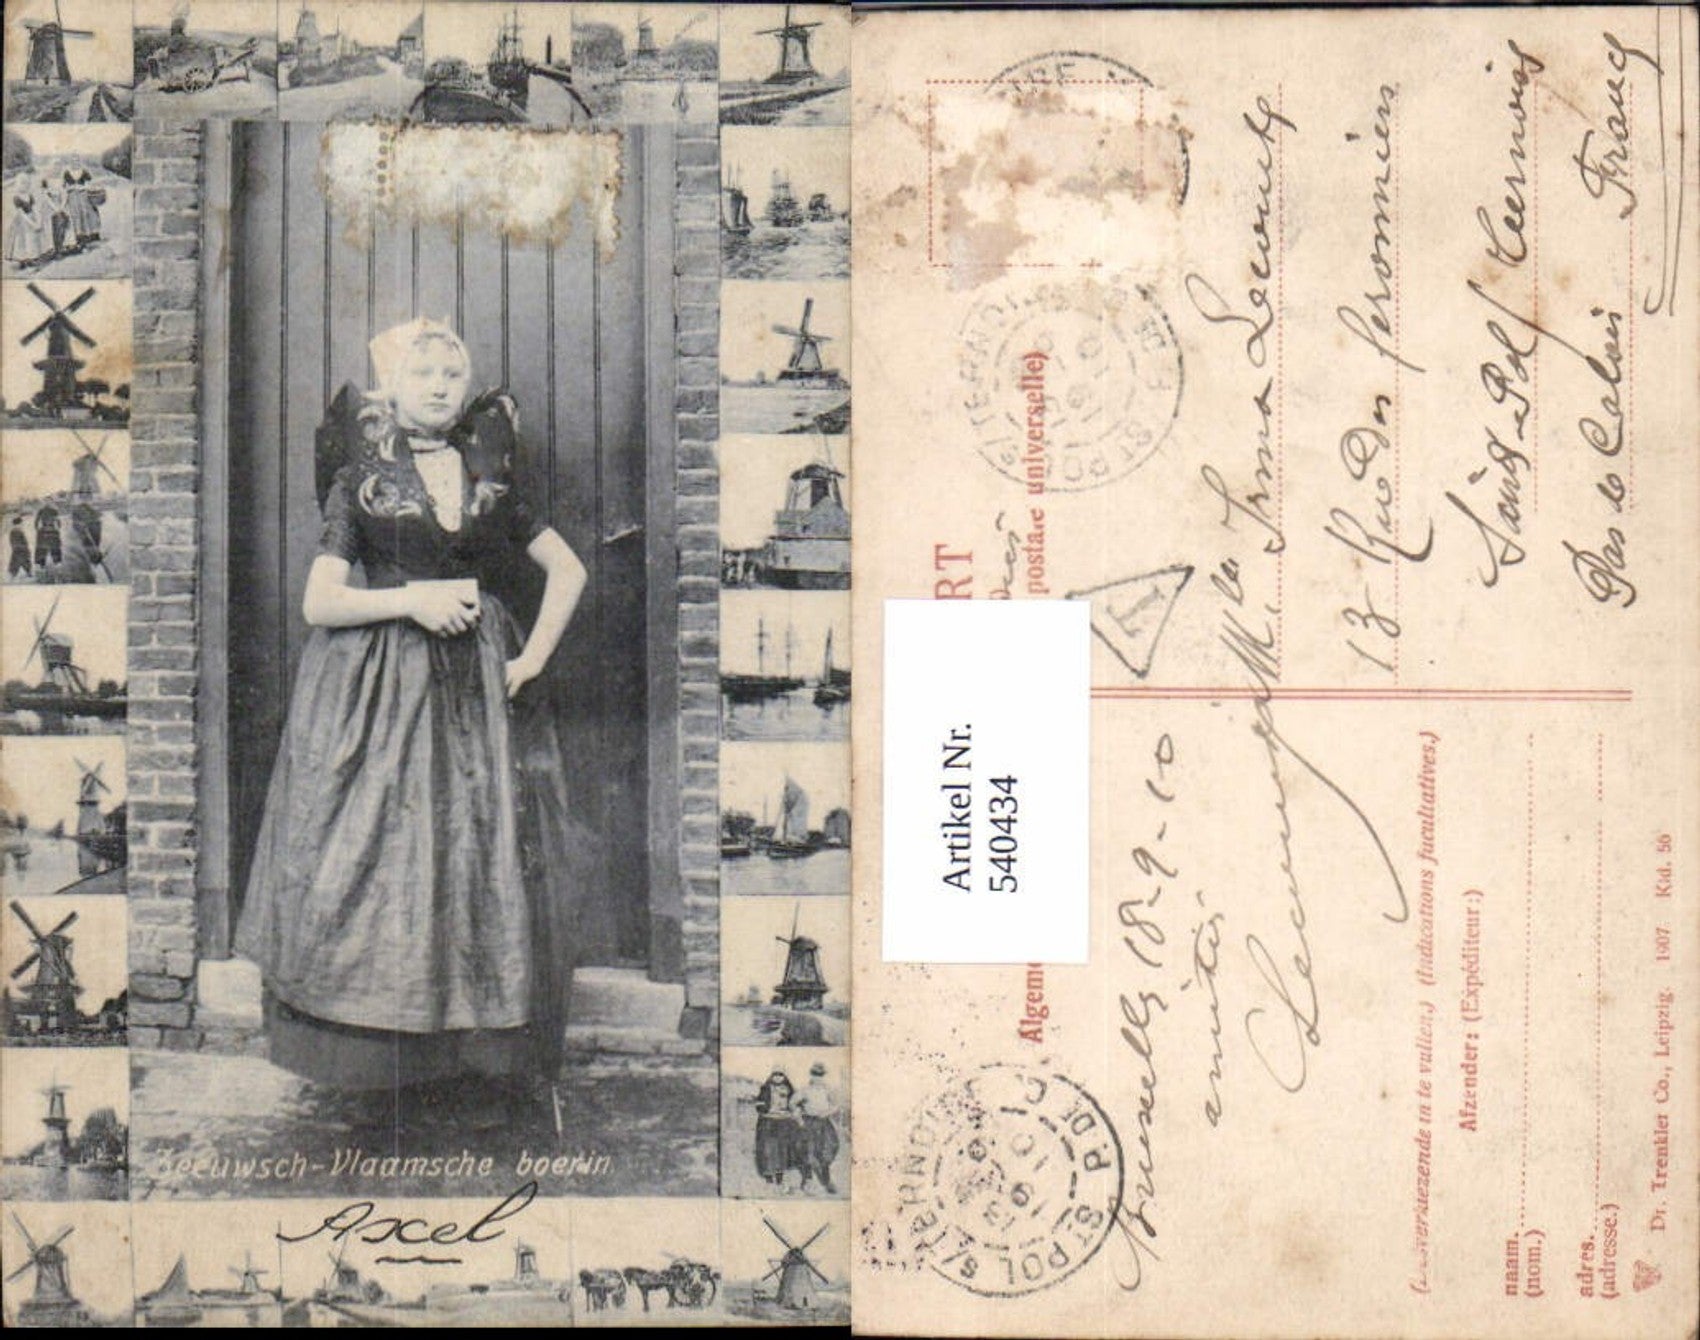 Zeeuwsch-Vlaamsche boerin
Axel
RT
postale universelle)
Algem
Artikel Nr.
540434
T
Mlle Irma Lecointe
13 Rue des
Saint-Pol s/ Ternoise
Pas de Calais France
Bruxelles 18-9-10
amitiés
ST POL S/TERNOISE P. DE C.
ST POL S/TERNOISE P. DE C.
19 10
19 10
in te vullen.) (Indications facultatives.)
Afzender: (Expéditeur:)
naam.
(nom.)
adres.
(adresse.)
Dr. Trenkler Co., Leipzig. 1907 Kid. 56